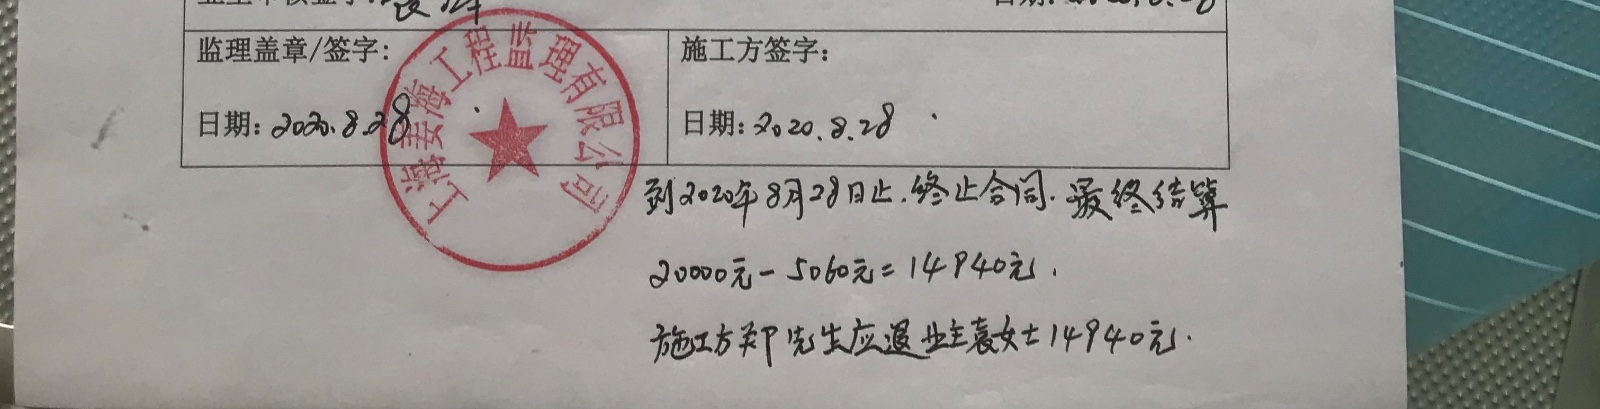 日期: 2020.8.28
监理盖章/签字:
施工方签字:
日期: 2020.8.28
日期: 2020.8.28
上海姜海工程监理有限公司
到2020年8月28日止.终止合同.最终结算
20000元-5060元=14940元.
施工方郑先生应退业主袁女士14940元.